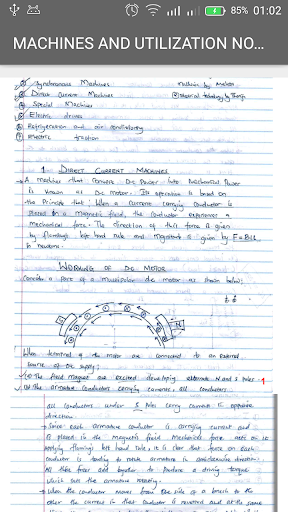 85% 01:02
MACHINES AND UTILIZATION NO...
① Synchronous Machines
② Direct Current Machines
③ Special Machines
④ Electric drives
⑤ Refrigeration and air conditioning
⑥ Electric traction
1 DIRECT CURRENT MACHINES
A machine that converts DC Power into mechanical Power
is known as DC Motor. Its operation is based on
the Principle that; When a current carrying conductor is
placed in a magnetic field, the conductor experiences a
mechanical force. The direction of this force is given
by flemings left hand rule and magnitude is given by F=BIL
in newtons.
WORKING OF DC MOTOR
Consider a part of a multipolar dc motor as shown below;
N
When terminal of the motor are connected to an external
source of DC supply;
(i) The field magnet are excited developing alternate N and S poles
(ii) The armature conductors carrying currents. All conductors
All conductors under S Poles carry current in opposite
direction
Since each armature conductor is carrying current and
is placed in the magnetic field mechanical force acts on it
applying flemings left hand rule, it is clear that force on each
conductor is tending to rotate armature in anticlockwise direction.
All these forces add together to produce a driving torque
which sets the armature rotating.
When the conductor moves from one side of a brush to the
other the current in that conductor is reversed and at the same